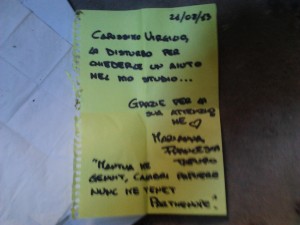 26/07/13
CARISSIMO VIRGILIO,
LA DISTURBO PER
CHIEDERLE UN AIUTO
NEL MIO STUDIO...
GRAZIE PER LA
SUA ATTENZIO
NE ♡
MARIANNA,
FRANCESCA
"MANTUA ME
GENUIT, CALABRI RAPUERE
NUNC ME TENET
PARTHENOPE"